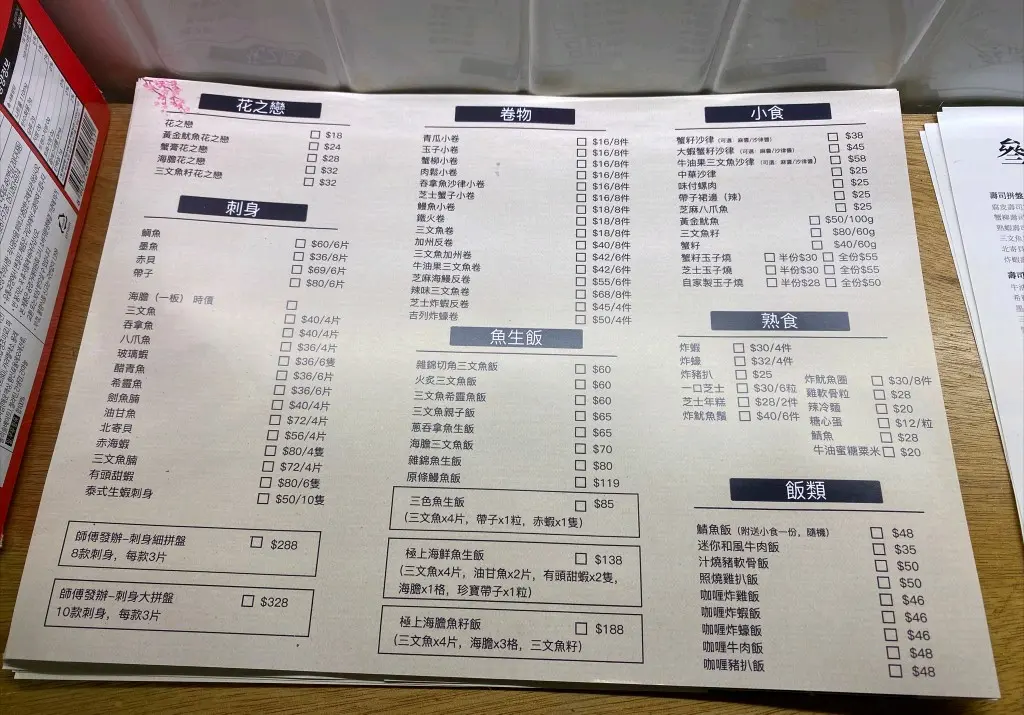 花之戀
花之戀 $18
黃金魷魚花之戀 $24
蟹膏花之戀 $28
海膽花之戀 $32
三文魚籽花之戀 $32
刺身
鯛魚 $60/6片
墨魚 $36/8片
赤貝 $69/6片
帶子 $80/6片
海膽（一板） 時價
三文魚 $40/4片
吞拿魚 $40/4片
八爪魚 $36/4片
玻璃蝦 $36/6隻
醋青魚 $36/6片
希靈魚 $36/6片
劍魚腩 $40/4片
油甘魚 $72/4片
北寄貝 $56/4片
赤海蝦 $80/4隻
三文魚腩 $72/4片
有頭甜蝦 $80/6隻
泰式生蝦刺身 $50/10隻
師傅發辦–刺身細拼盤 $288
8款刺身，每款3片
師傅發辦–刺身大拼盤 $328
10款刺身，每款3片
卷物
青瓜小卷 $16/8件
玉子小卷 $16/8件
蟹柳小卷 $16/8件
肉鬆小卷 $16/8件
吞拿魚沙律小卷 $16/8件
芝士蟹子小卷 $16/8件
鰻魚小卷 $18/8件
鐵火卷 $18/8件
三文魚卷 $18/8件
加州反卷 $40/8件
三文魚加州卷 $42/6件
牛油果三文魚卷 $42/6件
芝麻海鰻反卷 $55/6件
辣味三文魚卷 $68/8件
芝士炸蝦反卷 $45/4件
吉列炸蠔卷 $50/4件
魚生飯
雜錦切角三文魚飯 $60
火炙三文魚飯 $60
三文魚希靈魚飯 $60
三文魚親子飯 $65
蔥吞拿魚生飯 $65
海膽三文魚飯 $70
雜錦魚生飯 $80
原條鰻魚飯 $119
三色魚生飯 $85
（三文魚x4片，帶子x1粒，赤蝦x1隻）
極上海鮮魚生飯 $138
（三文魚x4片，油甘魚x2片，有頭甜蝦x2隻，
海膽x1格，珍寶帶子x1粒）
極上海膽魚籽飯 $188
（三文魚x4片，海膽x3格，三文魚籽）
小食
蟹籽沙律（可選：麻醬/沙律醬） $38
大蝦蟹籽沙律（可選：麻醬/沙律醬） $45
牛油果三文魚沙律（可選：麻醬/沙律醬） $58
中華沙律 $25
味付螺肉 $25
帶子裙邊（辣） $25
芝麻八爪魚 $25
黃金魷魚 $50/100g
三文魚籽 $80/60g
蟹籽 $40/60g
蟹籽玉子燒 半份$30 全份$55
芝士玉子燒 半份$30 全份$55
自家製玉子燒 半份$28 全份$50
熟食
炸蝦 $30/4件
炸蠔 $32/4件
炸豬扒 $25
一口芝士 $30/6粒
芝士年糕 $28/2件
炸魷魚鬚 $40/6件
炸魷魚圈 $30/8件
雞軟骨粒 $28
辣冷麵 $20
糖心蛋 $12/粒
鯖魚 $28
牛油蜜糖粟米 $20
飯類
鯖魚飯（附送小食一份，隨機） $48
迷你和風牛肉飯 $35
汁燒豬軟骨飯 $50
照燒雞扒飯 $50
咖喱炸雞飯 $46
咖喱炸蝦飯 $46
咖喱炸蠔飯 $46
咖喱牛肉飯 $48
咖喱豬扒飯 $48
壽司拼盤
蟹柳壽司
熟蝦壽司
三文魚
北寄貝
炸蝦
壽司